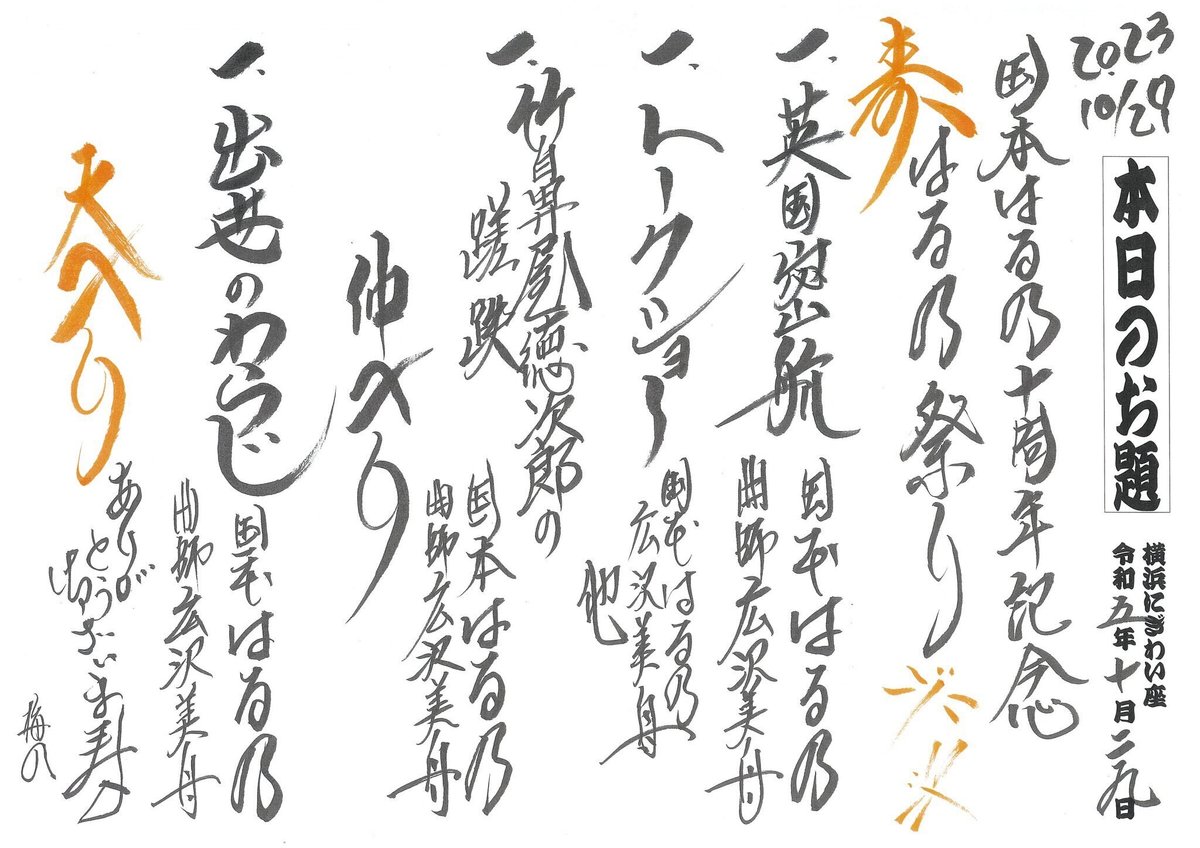 2023
10/29
本日のお題
横浜にぎわい座
令和五年十月二九日
国本はる乃十周年記念
寿はる乃祭り
一、英国密航
国本はる乃
曲師広沢美舟
一、トークショー
国本はる乃
広沢美舟
他
一、竹鼻尾徳次郎の
蹉跌
国本はる乃
曲師広沢美舟
仲入り
一、出世のわらじ
国本はる乃
曲師広沢美舟
大入り
ありが
とうござい